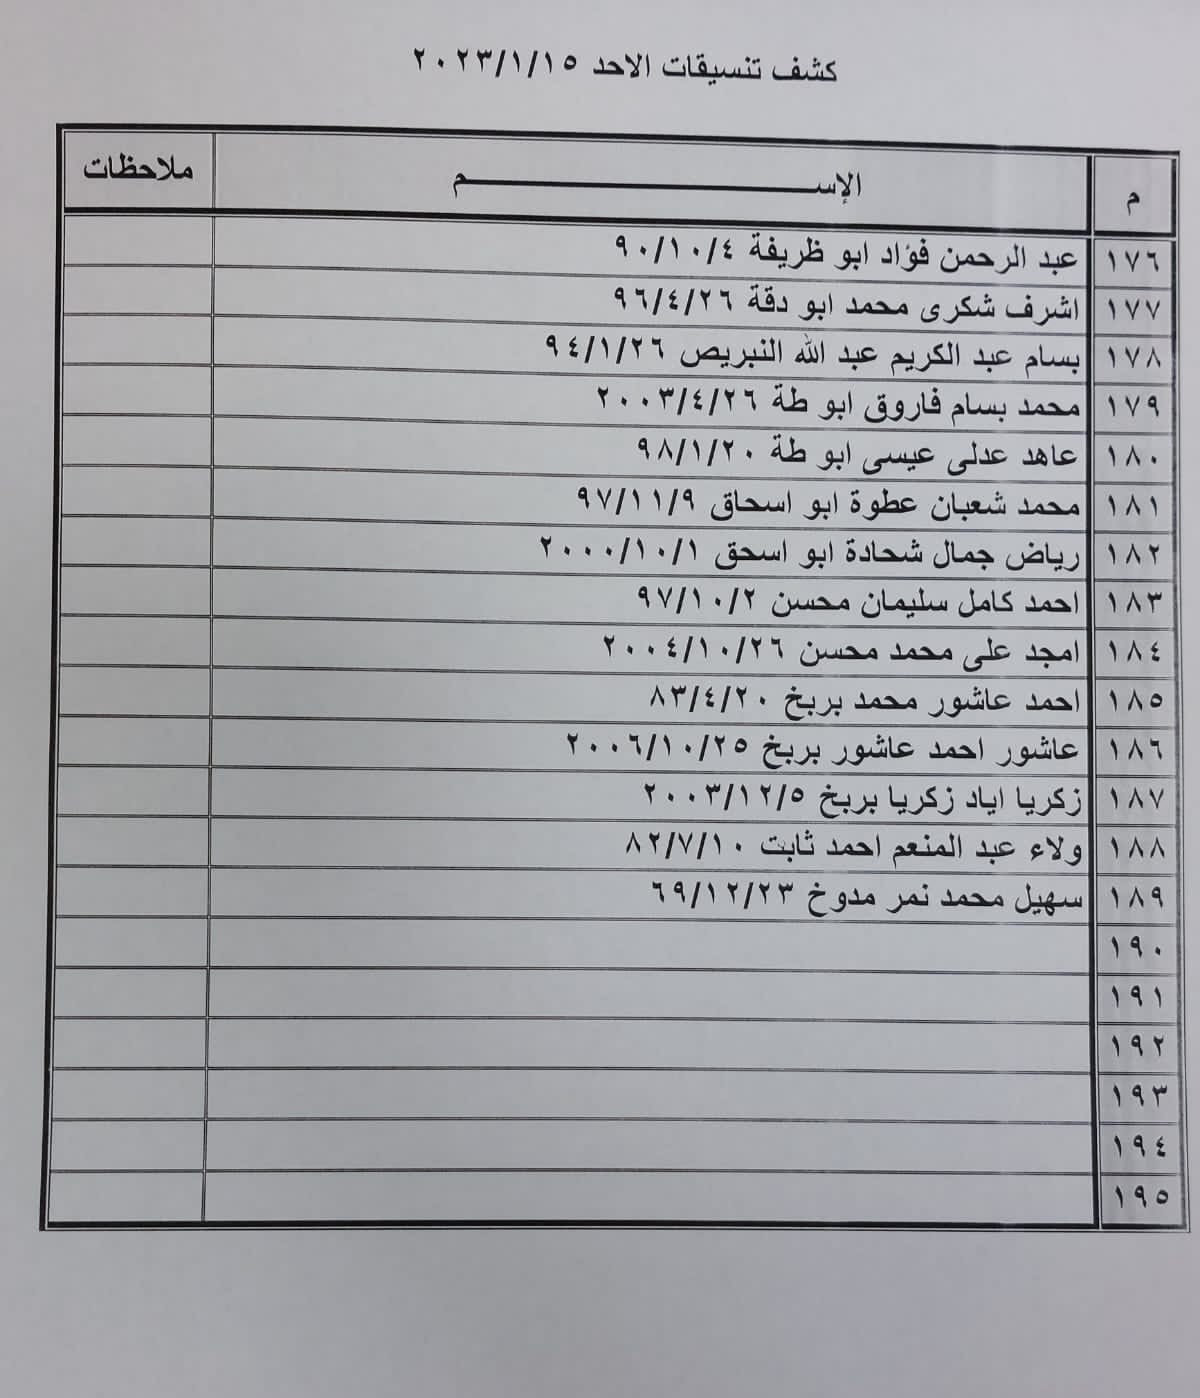 كشف تنسيقات الاحد ٢٠٢٣/١/١٥
م الإســـــــــم ملاحظات
١٧٦ عبد الرحمن فؤاد ابو ظريفة ٩٠/١٠/٤
١٧٧ اشرف شكرى محمد ابو دقة ٩٦/٤/٢٦
١٧٨ بسام عبد الكريم عبد الله النبريص ٩٤/١/٢٦
١٧٩ محمد بسام فاروق ابو طة ٢٠٠٣/٤/٢٦
١٨٠ عاهد عدلى عيسى ابو طة ٩٨/١/٢٠
١٨١ محمد شعبان عطوة ابو اسحاق ٩٧/١١/٩
١٨٢ رياض جمال شحادة ابو اسحق ٢٠٠٠/١٠/١
١٨٣ احمد كامل سليمان محسن ٩٧/١٠/٢
١٨٤ امجد على محمد محسن ٢٠٠٤/١٠/٢٦
١٨٥ احمد عاشور محمد بربخ ٨٣/٤/٢٠
١٨٦ عاشور احمد عاشور بربخ ٢٠٠٦/١٠/٢٥
١٨٧ زكريا اياد زكريا بربخ ٢٠٠٣/١٢/٥
١٨٨ ولاء عبد المنعم احمد ثابت ٨٢/٧/١٠
١٨٩ سهيل محمد نمر مدوخ ٦٩/١٢/٢٣
١٩٠
١٩١
١٩٢
١٩٣
١٩٤
١٩٥